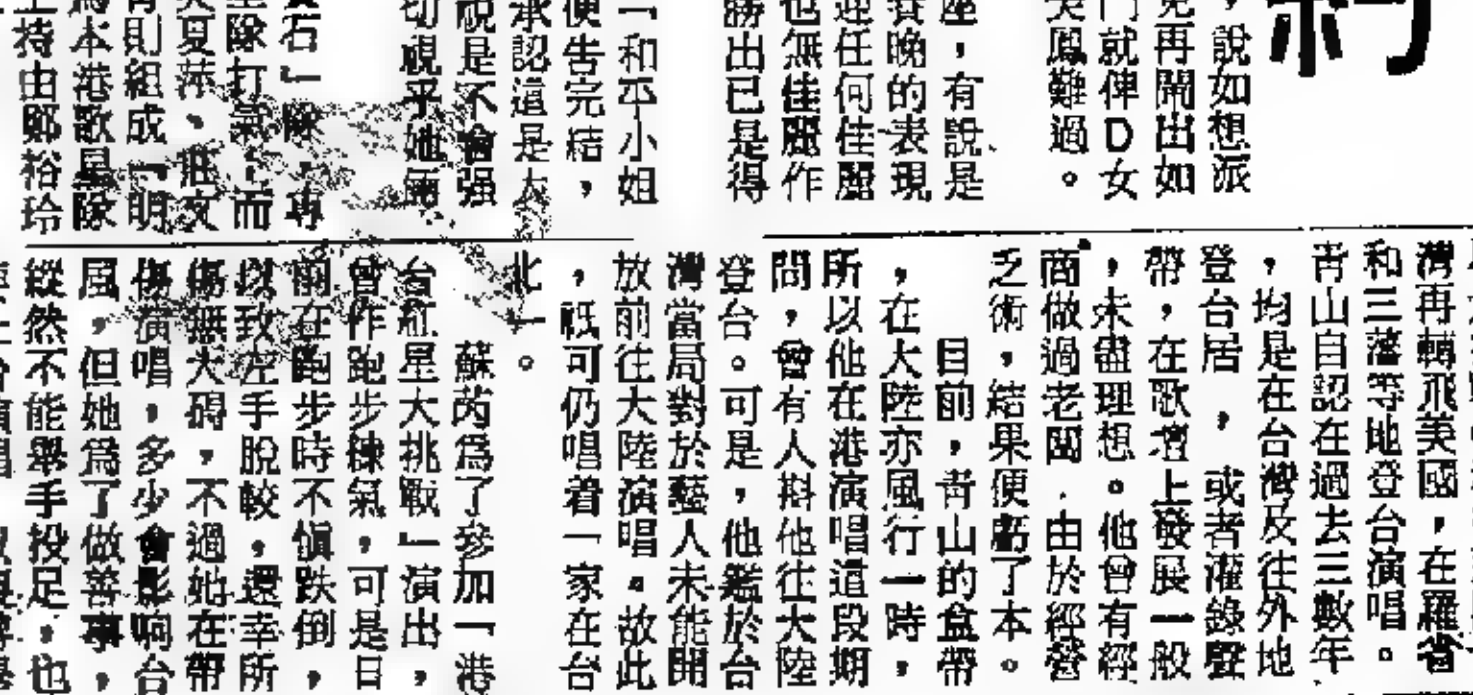 ，說如想派
再鬧出如
門就俾D女
鳳難過。
座，有說是
晚的表現
迎任何佳麗
也無佳麗作
勝出已是得
「和平小姐
便告完結，
承認這是大
說是不會强
切視乎她倆
石」隊，專
隊打氣；而
夏萍、
則組成「明
本港歌星隊
持由鄭裕玲
灣再轉飛美國，在羅省
和三藩等地登台演唱。
青山自認在過去三數年
，均是在台灣及往外地
登台居，或者灌錄聲
帶，在歌壇上發展一般
，未盡理想。他曾有經
商做過老闆，由於經營
乏術，結果便虧了本。
目前，青山的盒帶
，在大陸亦風行一時，
所以他在港演唱這段期
問，曾有人斟他往大陸
登台。可是，他鑑於台
灣當局對於藝人未能開
放前往大陸演唱。故此
，祇可仍唱着「家在台
北」。
蘇芮爲了參加「港
台紅星大挑戰」演出，
曾作跑步練氣，可是日
前在跑步時不愼跌倒，
以致左手脫較，還幸所
傷無大碍，不過她在帶
傷演唱，多少會影响台
風，但她爲了做善事，
縱然不能舉手投足，也